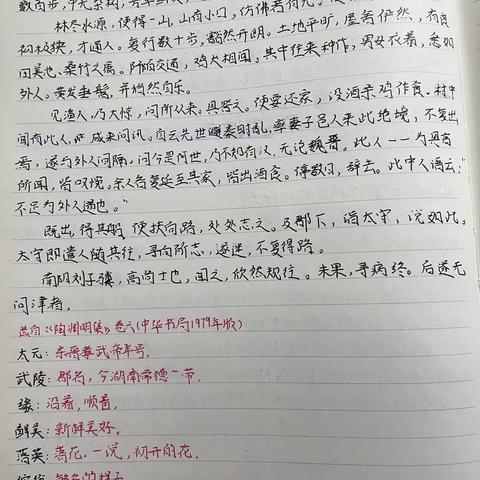 数百步,中无杂树,芳草鲜
林尽水源,便得一山,山有小口,仿佛若有光。
初极狭,才通人。复行数十步,豁然开朗。土地平旷,屋舍俨然,有良
田美池、桑竹之属。阡陌交通,鸡犬相闻。其中往来种作,男女衣着,悉如
外人。黄发垂髫,并怡然自乐。
见渔人,乃大惊,问所从来。具答之。便要还家,设酒杀鸡作食。村中
闻有此人,咸来问讯。自云先世避秦时乱,率妻子邑人来此绝境,不复出
焉,遂与外人间隔。问今是何世,乃不知有汉,无论魏晋。此人一一为具言
所闻,皆叹惋。余人各复延至其家,皆出酒食。停数日,辞去。此中人语云:“
不足为外人道也。”
既出,得其船,便扶向路,处处志之。及郡下,诣太守,说如此。
太守即遣人随其往,寻向所志,遂迷,不复得路。
南阳刘子骥,高尚士也,闻之,欣然规往。未果,寻病终。后遂无
问津者。
选自《陶渊明集》卷六(中华书局1979年版)
太元:东晋孝武帝年号。
武陵:郡名,今湖南常德一带。
缘:沿着,顺着。
鲜美:新鲜美好。
落英:落花。一说,初开的花。
缤纷:繁多的样子